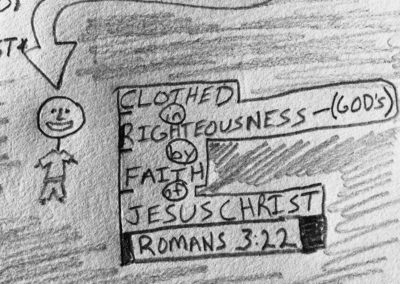 CLOTHED
in
RIGHTEOUSNESS — (GOD'S)
by
FAITH
of
JESUS CHRIST
ROMANS 3:22